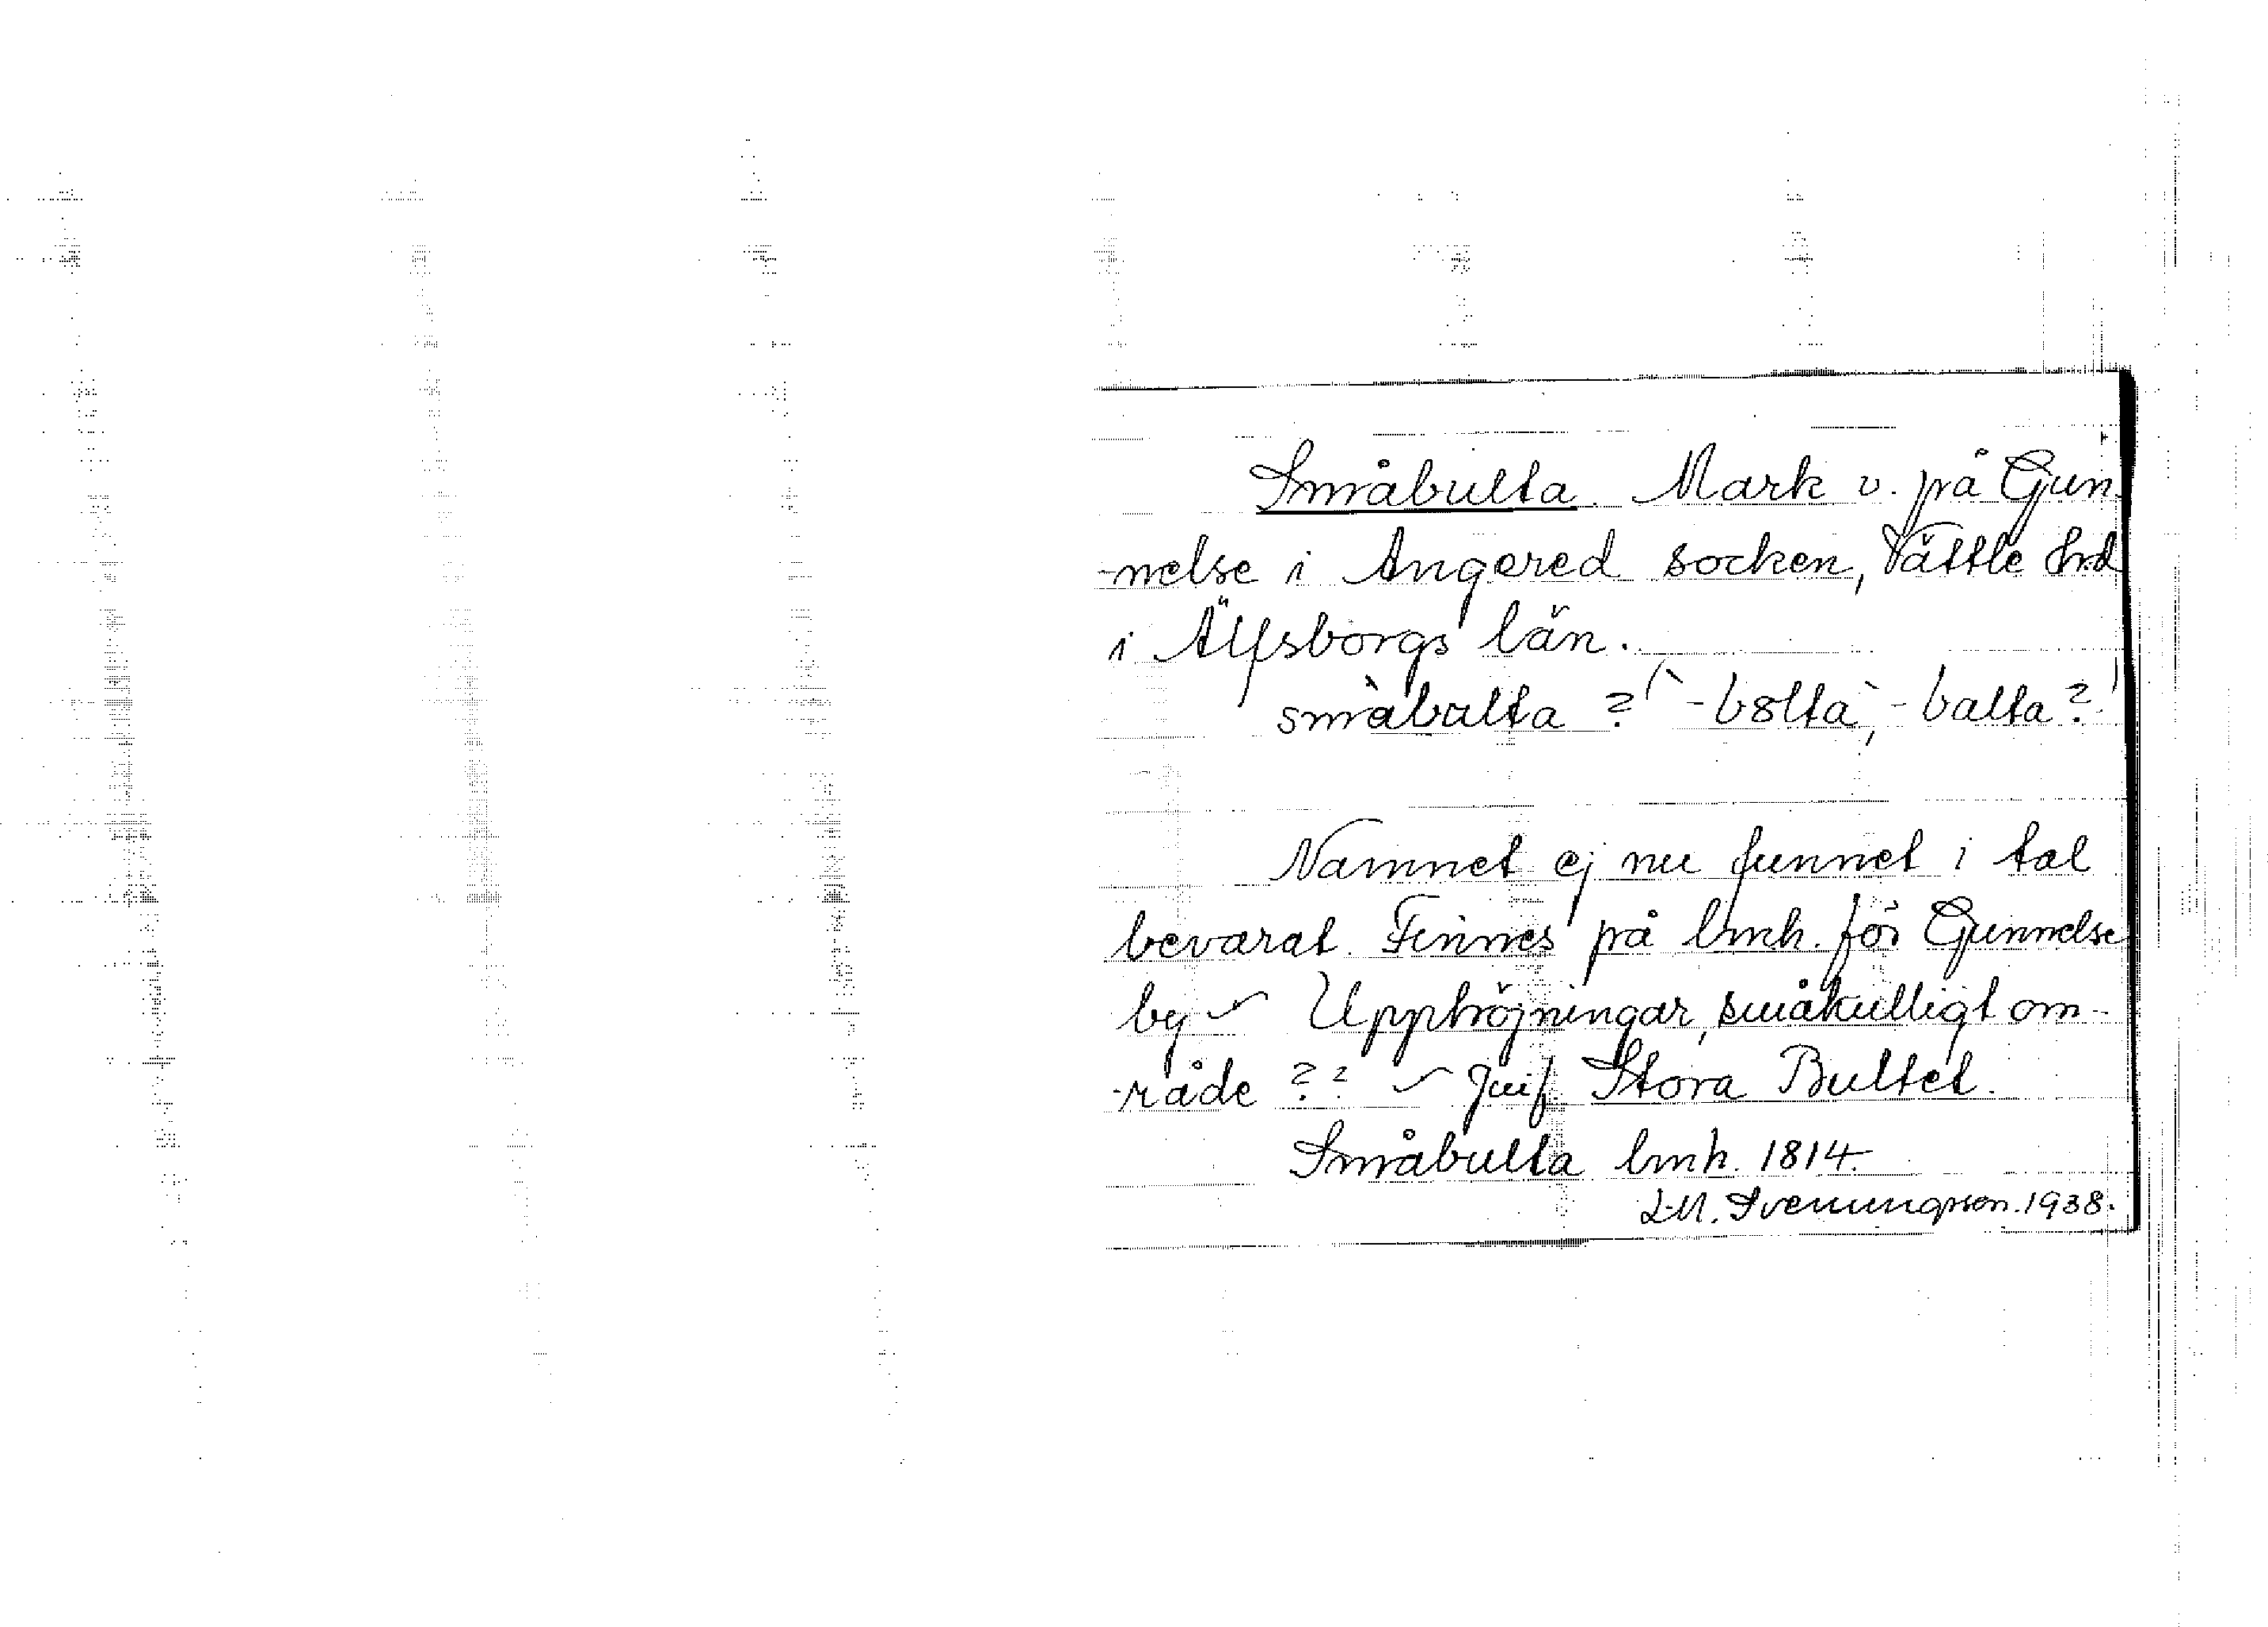 Småbulta. Mark v. på Gun
-nelse i Angered socken, Vättle hd
i Älfsborgs län.
småbulta? (-bolta, -balta?)
Namnet ej nu funnet i tal
bevarat. Finnes på lmh. för Gunnelse
by ~ Upphöjningar, småkulligt om-
-råde ?? ~ Jmf. Stora Bultet.
Småbulta lmh. 1814.
L.M. Svenungsson. 1938.